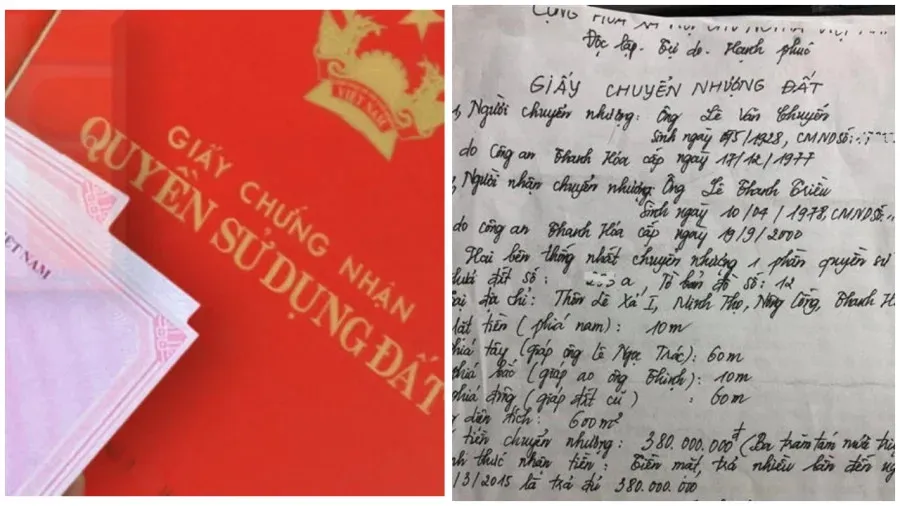 VIỆT NAM
GIẤY CHỨNG NHẬN
QUYỀN SỬ DỤNG ĐẤT
VIỆT NAM
CỘNG HÒA XÃ HỘI CHỦ NGHĨA VIỆT NAM
Độc lập - Tự do - Hạnh phúc
GIẤY CHUYỂN NHƯỢNG ĐẤT
1, Người chuyển nhượng: Ông Lê Văn Thuyến
Sinh ngày 6/5/1928, CMND số:
do Công an Thanh Hóa cấp ngày 17/12/1977
, Người nhận chuyển nhượng: Ông Lê Thanh Triều
Sinh ngày 10/04/1978, CMND số:
do công an Thanh Hóa cấp ngày 19/9/2000
Hai bên thống nhất chuyển nhượng 1 phần quyền sử
đất số: a, Tờ bản đồ số: 12
địa chỉ: Thôn Lê Xá I, Minh Thọ, Nông Cống, Thanh H
Mặt tiền (phía nam): 10m
hía tây (giáp ông Lê Ngọc Trác): 60m
phía bắc (giáp ao ông Thịnh): 10m
phía đông (giáp đất cũ) : 60m
diện tích: 600m²
tiền chuyển nhượng: 380.000.000đ (Ba trăm tám mươi triệ
nh thức nhận tiền: Tiền mặt, trả nhiều lần đến ng
/3/2015 là trả đủ 380.000.000